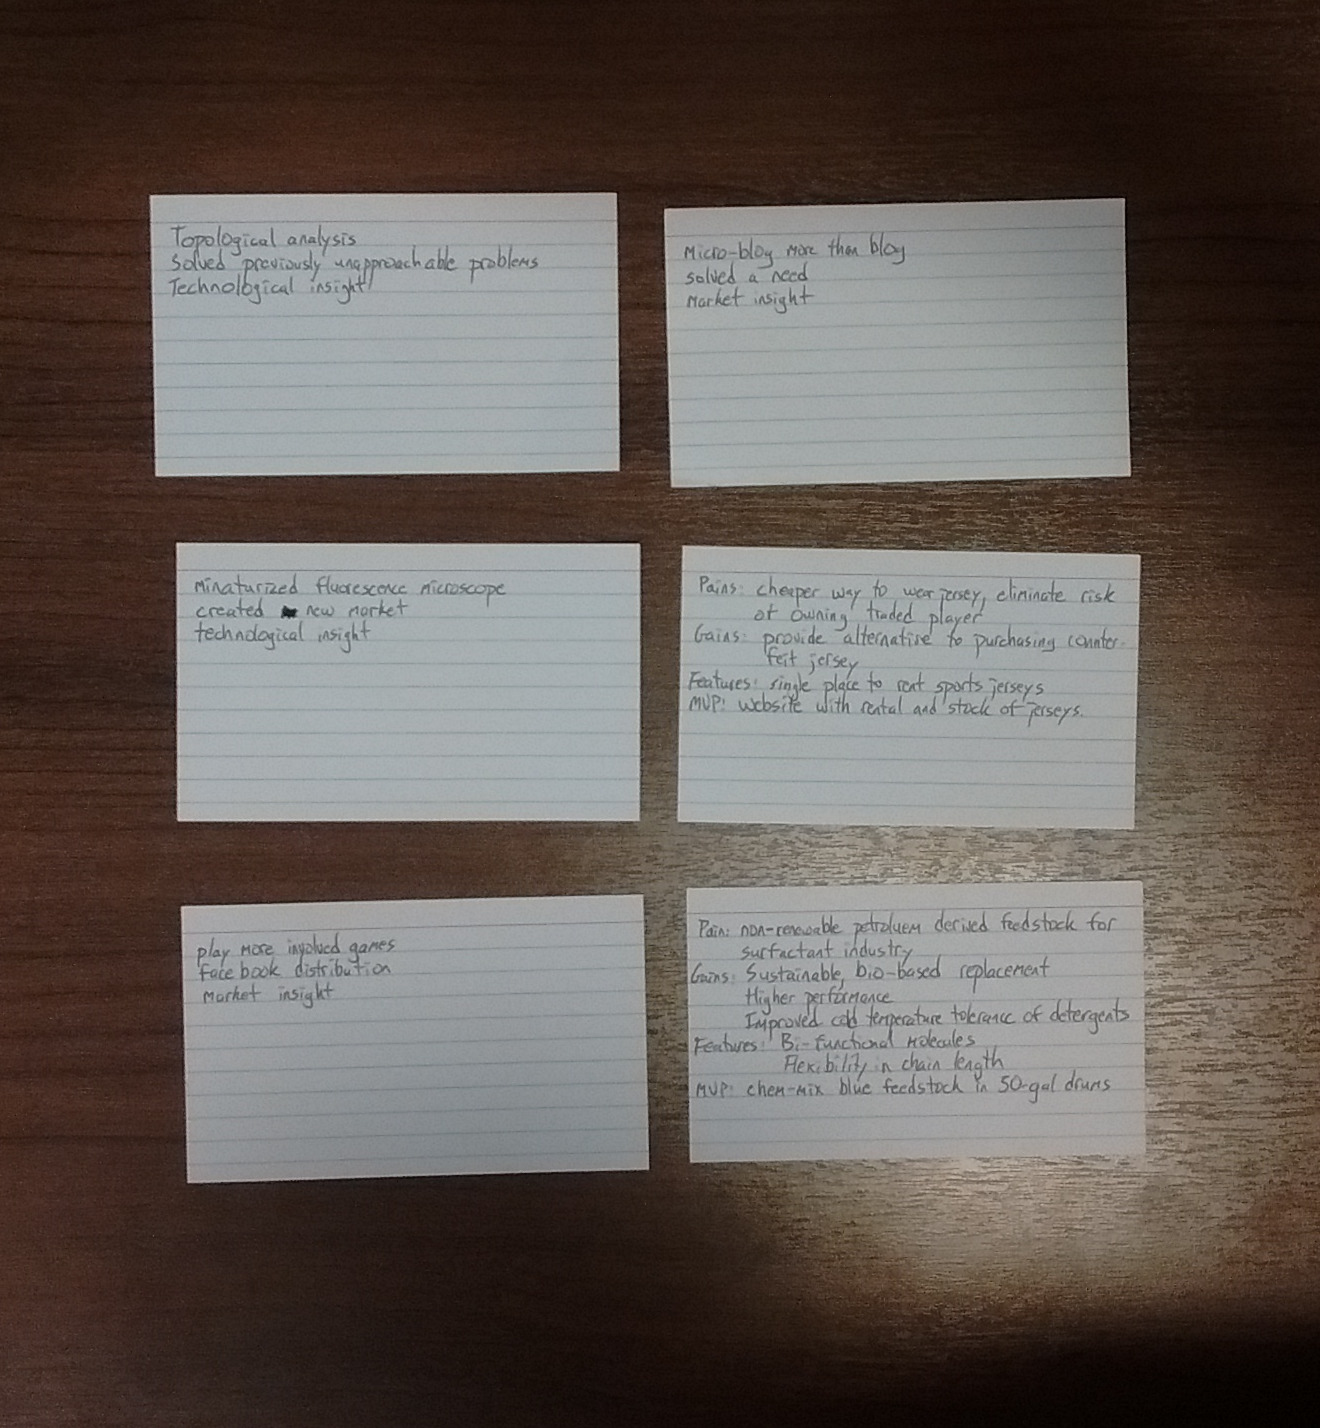 Topological analysis
Solved previously unapproachable problems
Technological insight
Micro-blog more than blog
solved a need
Market insight
Minaturized fluorescence microscope
created new market
technological insight
Pains: cheaper way to wear jersey, eliminate risk
of owning traded player
Gains: provide alternative to purchasing counter-
feit jersey
Features: single place to rent sports jerseys
MVP: website with rental and stock of jerseys.
play more involved games
Facebook distribution
Market insight
Pain: non-renewable petroluem derived feedstock for
surfactant industry
Gains: Sustainable, bio-based replacement
Higher performance
Improved cold temperature tolerance of detergents
Features: Bi-functional molecules
Flexibility in chain length
MVP: chem-mix blue feedstock in 50-gal drums